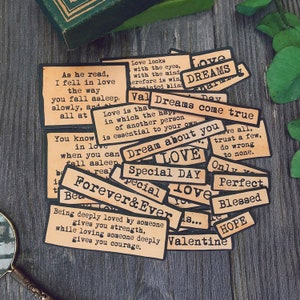 As he read,
I fell in love
the way
you fall asleep,
slowly, and th
all at
Love looks
with the eyes,
with the mind
herefore is win
LOVE
DREAMS
Val
Dreams come true
Love is tha
in which the happin
of another person
is essential to your own
Love all,
trust a few,
do wrong
to none.
You know
in love
when you can
fall asleep
reality
Dream about you
LOVE
Special DAY
Special
love
Only You
Perfect
Blessed
HOPE
Forever&Ever
is...
Valentine
Being deeply loved by someone
gives you strength,
while loving someone deeply
gives you courage.